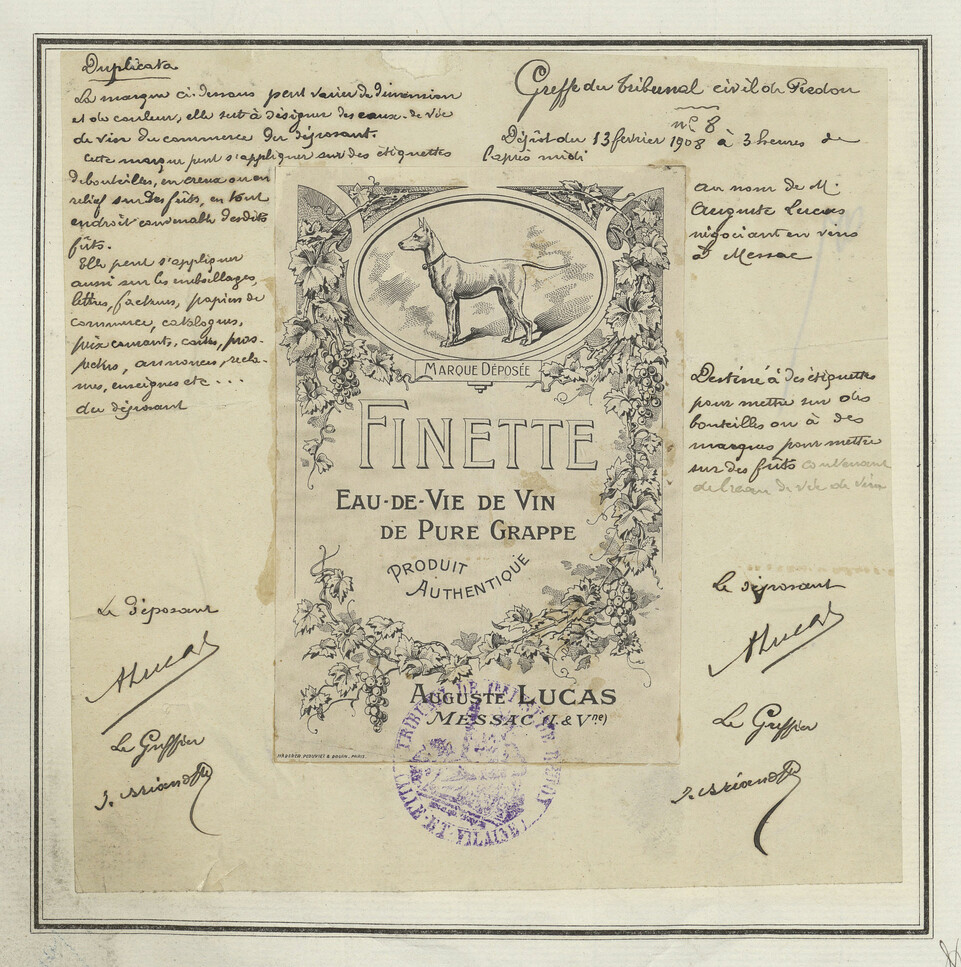 Duplicata
La marque ci-dessus peut varier de dimension
et de couleur, elle sert à désigner des eaux-de-vie
de vin du commerce du déposant.
Cette marque peut s'appliquer sur des étiquettes
de bouteilles, en creux ou en
relief sur des fûts, en tout
endroit convenable desdits
fûts.
Elle peut s'appliquer
aussi sur les emballages,
lettres, factures, papiers de
commerce, catalogues,
prix courants, cartes, pros-
pectus, annonces, récla-
mes, enseignes etc...
du déposant
Greffe du Tribunal civil de Redon
nº 8
Dépôt du 13 février 1908 à 3 heures de
l'après midi
au nom de M.
Auguste Lucas
négociant en vins
à Messac
Destiné à des étiquettes
pour mettre sur des
bouteilles ou à des
marques pour mettre
sur des fûts contenant
de l'eau de vie de vin
MARQUE DÉPOSÉE
FINETTE
EAU-DE-VIE DE VIN
DE PURE GRAPPE
PRODUIT
AUTHENTIQUE
AUGUSTE LUCAS
MESSAC (I. & Vne)
TRIBUNAL DE
ILLE-ET-VILAINE
Le déposant
ALucas
Le Greffier
J. Briand
Le déposant
ALucas
Le Greffier
J. Briand